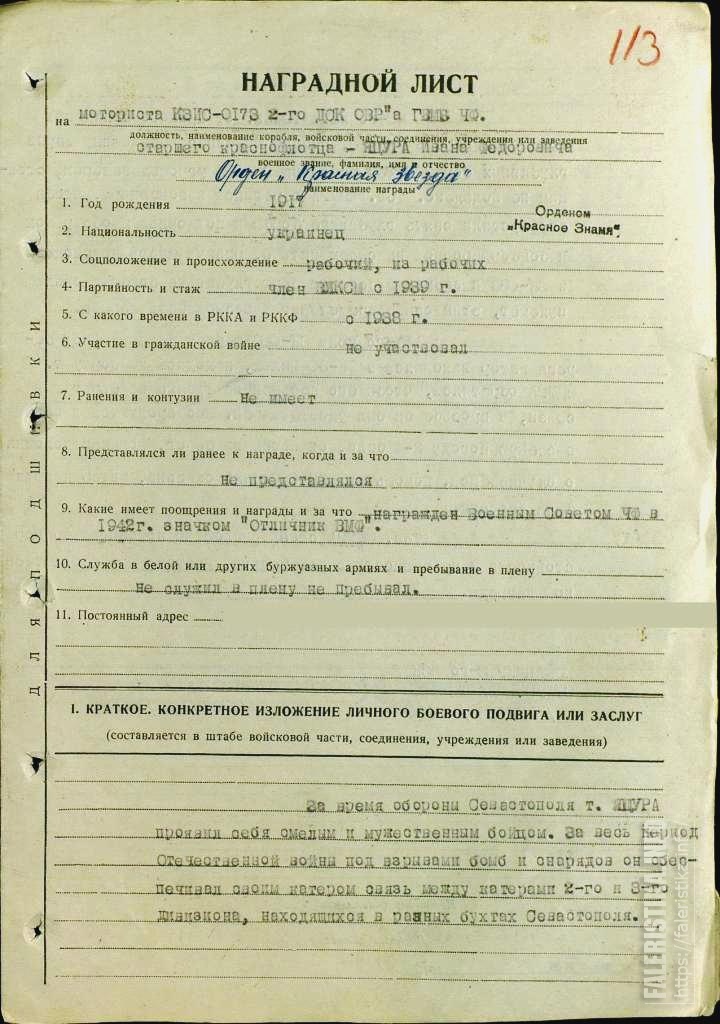 113
НАГРАДНОЙ ЛИСТ
на моториста КЗИС-0173 2-го ДСК ОВР"а ГВМБ ЧФ.
должность, наименование корабля, войсковой части, соединения, учреждения или заведения
старшего краснофлотца - ЯЩУРА Ивана Федоровича
военное звание, фамилия, имя и отчество
Орден „Красная Звезда"
наименование награды
1. Год рождения 1917
Орденом
„Красное Знамя".
2. Национальность украинец
3. Соцположение и происхождение рабочий, из рабочих
4. Партийность и стаж член ВЛКСМ с 1939 г.
5. С какого времени в РККА и РККФ с 1938 г.
6. Участие в гражданской войне не участвовал
7. Ранения и контузии Не имеет
8. Представлялся ли ранее к награде, когда и за что
Не представлялся
9. Какие имеет поощрения и награды и за что награжден Военным Советом ЧФ в
1942г. значком "Отличник ВМФ".
10. Служба в белой или других буржуазных армиях и пребывание в плену
Не служил в плену не пребывал.
11. Постоянный адрес
ДЛЯ ПОДШИВКИ
I. КРАТКОЕ. КОНКРЕТНОЕ ИЗЛОЖЕНИЕ ЛИЧНОГО БОЕВОГО ПОДВИГА ИЛИ ЗАСЛУГ
(составляется в штабе войсковой части, соединения, учреждения или заведения)
За время обороны Севастополя т. ЯЩУРА
проявил себя смелым и мужественным бойцом. За весь период
Отечественной войны под взрывами бомб и снарядов он обес-
печивал своим катером связь между катерами 2-го и 3-го
дивизиона, находящихся в разных бухтах Севастополя.